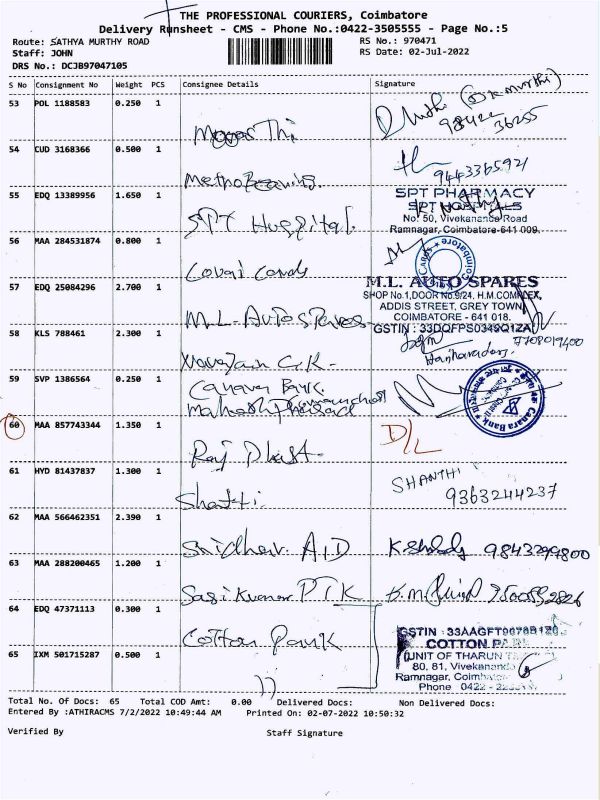 THE PROFESSIONAL COURIERS, Coimbatore
Delivery Runsheet - CMS - Phone No.:0422-3505555 - Page No.:5
Route: SATHYA MURTHY ROAD RS No.: 970471
Staff: JOHN RS Date: 02-Jul-2022
DRS No.: DCJB97047105
S No Consignment No Weight PCS Consignee Details Signature
53 POL 1188583 0.250 1
98422 36255
54 CUD 3168366 0.500 1
9443365921
55 EDQ 13389956 1.650 1
SPT Hospital
SPT PHARMACY
SPT HOSPITALS
No: 50, Vivekananda Road
Ramnagar, Coimbatore-641 009.
56 MAA 284531874 0.800 1
Covai Cards
57 EDQ 25084296 2.700 1
M.L. Auto Spares
M.L. AUTO SPARES
SHOP No.1, DOOR No.9/24, H.M.COMPLEX,
ADDIS STREET, GREY TOWN,
COIMBATORE - 641 018.
GSTIN : 33DQFPS0349Q1ZA
58 KLS 788461 2.300 1
59 SVP 1386564 0.250 1
Canara Bank
Canara Bank
60 MAA 857743344 1.350 1
D/L
61 HYD 81437837 1.300 1
SHANTHI
9363244237
62 MAA 566462351 2.390 1
Sridhar A.D 9843299800
63 MAA 288200465 1.200 1
Sasikumar PTK
64 EDQ 47371113 0.300 1
Cotton Park
COTTON PARK
UNIT OF THARUN
80, 81, Vivekananda
Ramnagar, Coimbatore
Phone 0422 -
65 IXM 501715287 0.500 1
Total No. Of Docs: 65 Total COD Amt: 0.00 Delivered Docs: Non Delivered Docs:
Entered By :ATHIRACMS 7/2/2022 10:49:44 AM Printed On: 02-07-2022 10:50:32
Verified By Staff Signature